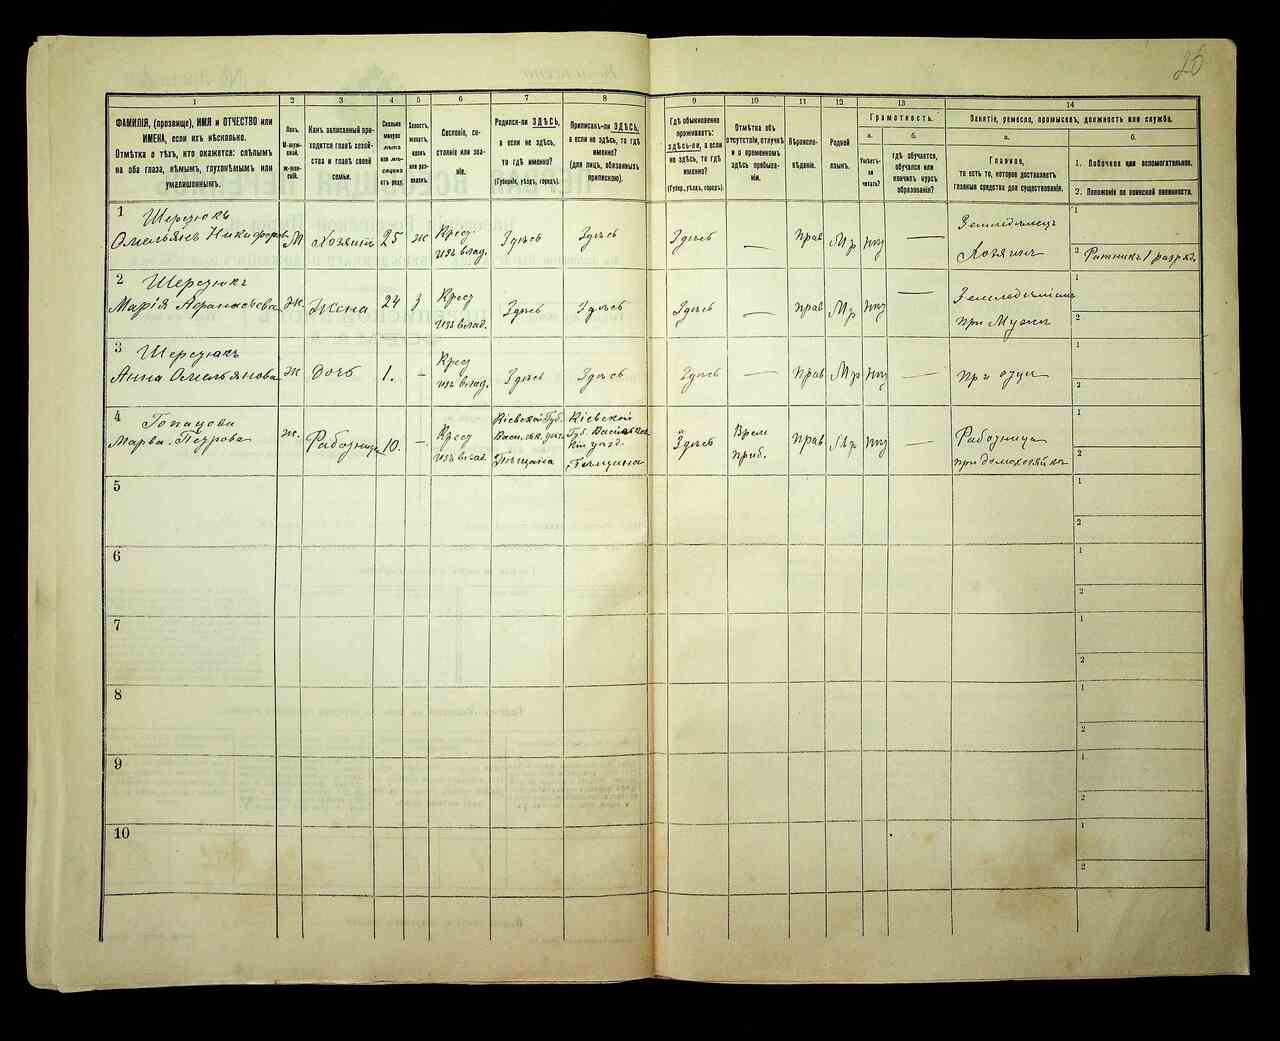 26
1
2
3
4
5
6
7
8
9
10
11
12
13
14
ФАМИЛІЯ, (прозвище), ИМЯ и ОТЧЕСТВО или
ИМЕНА, если ихъ нѣсколько.
Отмѣтка о тѣхъ, кто окажется: слѣпымъ
на оба глаза, нѣмымъ, глухонѣмымъ или
умалишеннымъ.
Полъ.
М-муж-
ской.
Ж-жен-
скій.
Какъ записанный при-
ходится главѣ хозяй-
ства и главѣ своей
семьи.
Сколько
минуло
лѣтъ
или мѣ-
сяцевъ
отъ роду.
Холостъ,
женатъ,
вдовъ
или раз-
веденъ.
Сословіе, со-
стояніе или зва-
ніе.
Родился-ли ЗДѢСЬ,
а если не здѣсь,
то гдѣ именно?
(Губернія, уѣздъ, городъ).
Приписанъ-ли ЗДѢСЬ,
а если не здѣсь, то гдѣ
именно?
(для лицъ, обязанныхъ
припискою).
Гдѣ обыкновенно
проживаетъ:
здѣсь-ли, а если
не здѣсь, то гдѣ
именно?
(Губер., уѣздъ, городъ).
Отмѣтка объ
отсутствіи, отлучкѣ
и о временномъ
здѣсь пребыва-
ніи.
Вѣроиспо-
вѣданіе.
Родной
языкъ.
Грамотность.
а.
Умѣетъ-
ли
читать?
б.
гдѣ обучается,
обучался или
кончилъ курсъ
образованія?
Занятіе, ремесло, промыселъ, должность или служба.
а.
Главное,
то есть то, которое доставляетъ
главныя средства для существованія.
б.
1. Побочное или вспомогательное.
2. Положеніе по воинской повинности.
1 Шередюкъ
Омельянъ Никифоровъ М Хозяинъ 25 ж Крес. изъ влад. Здѣсь Здѣсь Здѣсь — Прав Мр нѣт — Земледѣлецъ Хозяинъ
1
2 Ратникъ 1 разряд.
2 Шередюкъ
Марія Афанасьева Ж. Жена 24 з Крес изъ влад. Здѣсь Здѣсь Здѣсь — Прав Мр нѣт — при Мужѣ
1
2
3 Шередюкъ
Анна Омельянова ж Дочь 1. – Крес изъ влад. Здѣсь Здѣсь Здѣсь — Прав Мр нѣт — при отцѣ
1
2
4
Марва Петрова ж. Работница 10. – Крес изъ влад. Кіевской Губ. Васильк. уѣз. Кіевской Губ. Здѣсь Врем приб. Прав Мр нѣт — Работница при домохозяйкѣ
1
2
5
1
2
6
1
2
7
1
2
8
1
2
9
1
2
10
1
2